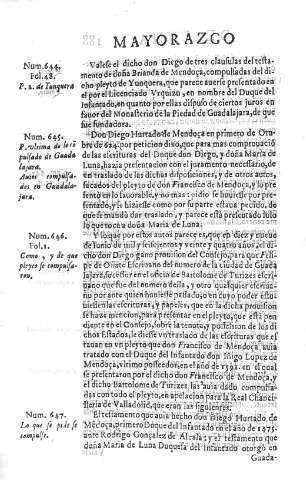 MAYORAZGO
Num. 644.
Fol. 48.
P. 2. de Yunquera
Valese el dicho don Diego de tres clausulas del testa-
mento de doña Brianda de Mendoça, compulsadas del di-
cho pleyto de Yunquera, que parece auerse presentado en
el por el Licenciado Vrquizo, en nombre del Duque del
Infantado, en quanto por ellas dispuso de ciertos juros en
fauor del Monasterio de la Piedad de Guadalajara, de que
fue fundadora.
Num. 645.
pulsada de Guada
lajara.
Autos compulsa-
dos en Guadala-
jara.
Don Diego Hurtado de Mendoça en primero de Otu-
bre de 624. por peticion dixo, que para mas comprouació
de las escrituras del Duque don Diego, y doña Maria de
Luna, hazia presentacion con el juramento necessario, de
vn traslado de las dichas disposiciones, y de otros autos,
sacados del pleyto de don Francisco de Mendoça, y lo pre
sento en lo fauorable, y no mas: y pidio se huuiesse por pre-
sentado, y se hiziesse como por su parte estaua pedido, do
que se mandò dar traslado, y parece està presentado solo
lo que toca a doña Maria de Luna.
Num. 646.
Fol. 1.
Como, y de que
pleytos se compulsa-
ron.
Y lo que por estos autos parece es, que en diez y nueue
de Iunio de mil y seiscientos y veinte y quatro años, el di-
cho don Diego ganò prouision del Consejo, para que Feli-
pe de Oñate Escriuano del numero de la ciudad de Guada
lajara, sucessor en el oficio de Bartolome de Turizes escri-
uano que fue del numero della, y otro qualquier escriua-
no por ante quien huuiesse passado, o en cuyo poder estu-
uiessen las escrituras, y papeles, de que en la dicha prouision
se haze mencion, para presentar en el pleyto, que està pen
diente en el Consejo, sobre la tenuta, y possession de los di-
chos Estados, le diesse vn traslado de las escrituras que es-
tauan en vn pleyto que don Francisco de Mendoça auia
tratado con el Duque del Infantado don Iñigo Lopez de
Mendoça, vltimo posseedor, en el año de 1592. en el qual
se presentaron por el dicho don Francisco de Mendoça, y
el dicho Bartolome de Turizes las auia dado compulsa-
das con todo el pleyto, en apelacion para la Real Chanci-
lleria de Valladolid, que eran las siguientes.
Num. 647.
Lo que se pide se
compulse.
El testamento que auia hecho don Diego Hurtado de
Médoça, primero Duque del Infantado en el año de 1475.
ante Rodrigo Gonçalez de Alcalà; y el testamento que
doña Maria de Luna Duquesa del Infantado otorgò en
Guada-